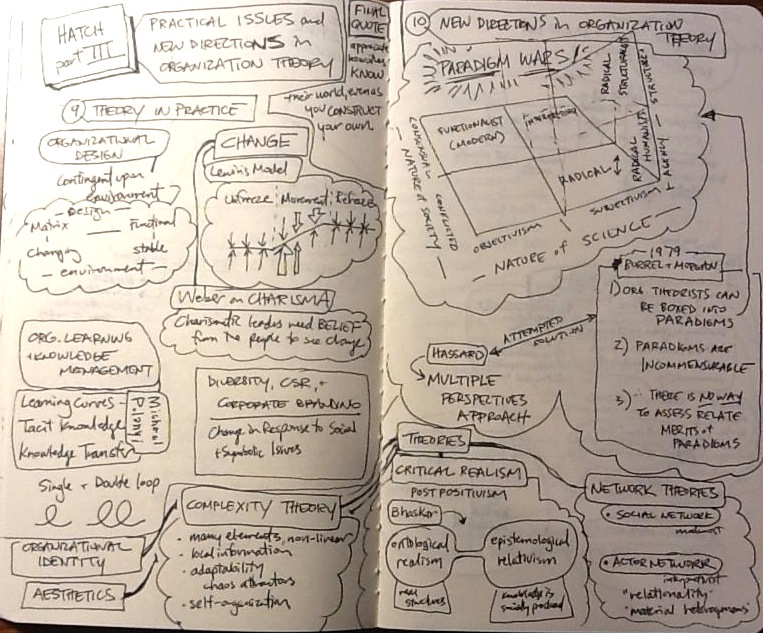 HATCH
part III
PRACTICAL ISSUES and
NEW DIRECTIONS in
ORGANIZATION THEORY
FINAL
QUOTE
KNOW
their world, even as
you CONSTRUCT
your own.
9 THEORY IN PRACTICE
ORGANIZATIONAL
DESIGN
Contingent upon
environment
- Design -
Matrix — Functional
Changing stable
- environment -
CHANGE
Lewin's Model
Unfreeze Movement Refreeze
Weber on CHARISMA
Charismatic leaders need BELIEF
from the people to see change
ORG. LEARNING
+ KNOWLEDGE
MANAGEMENT
Learning Curves -
Tacit Knowledge
Knowledge Transfer
Michael
Polanyi
Single + Double loop
DIVERSITY, CSR, +
CORPORATE BRANDING
Change in Response to Social
+ Symbolic Issues
ORGANIZATIONAL
IDENTITY
AESTHETICS
COMPLEXITY THEORY
• many elements, non-linear
• local information
• adaptability
chaos attractors
• self-organization
10 NEW DIRECTIONS in ORGANIZATION
THEORY
PARADIGM WARS
CONSENSUAL CONFLICTED
- NATURE of SOCIETY -
FUNCTIONALIST
(MODERN)
RADICAL
STRUCTURALIST
STRUCTURE
RADICAL
HUMANIST
AGENCY
RADICAL
OBJECTIVISM
SUBJECTIVISM
- NATURE of SCIENCE -
1979
BURREL + MORGAN
1) ORG THEORISTS CAN
BE BOXED INTO
PARADIGMS
2) PARADIGMS ARE
INCOMMENSURABLE
3) ∴ THERE IS NO WAY
TO ASSESS RELATE
MERITS of
PARADIGMS
ATTEMPTED
SOLUTION
HASSARD
MULTIPLE
PERSPECTIVES
APPROACH
THEORIES
CRITICAL REALISM
POST POSITIVISM
Bhaskar
ontological
realism
epistemological
relativism
real
structures
knowledge is
socially produced
NETWORK THEORIES
• SOCIAL NETWORK
• ACTOR NETWORK
"relationality"